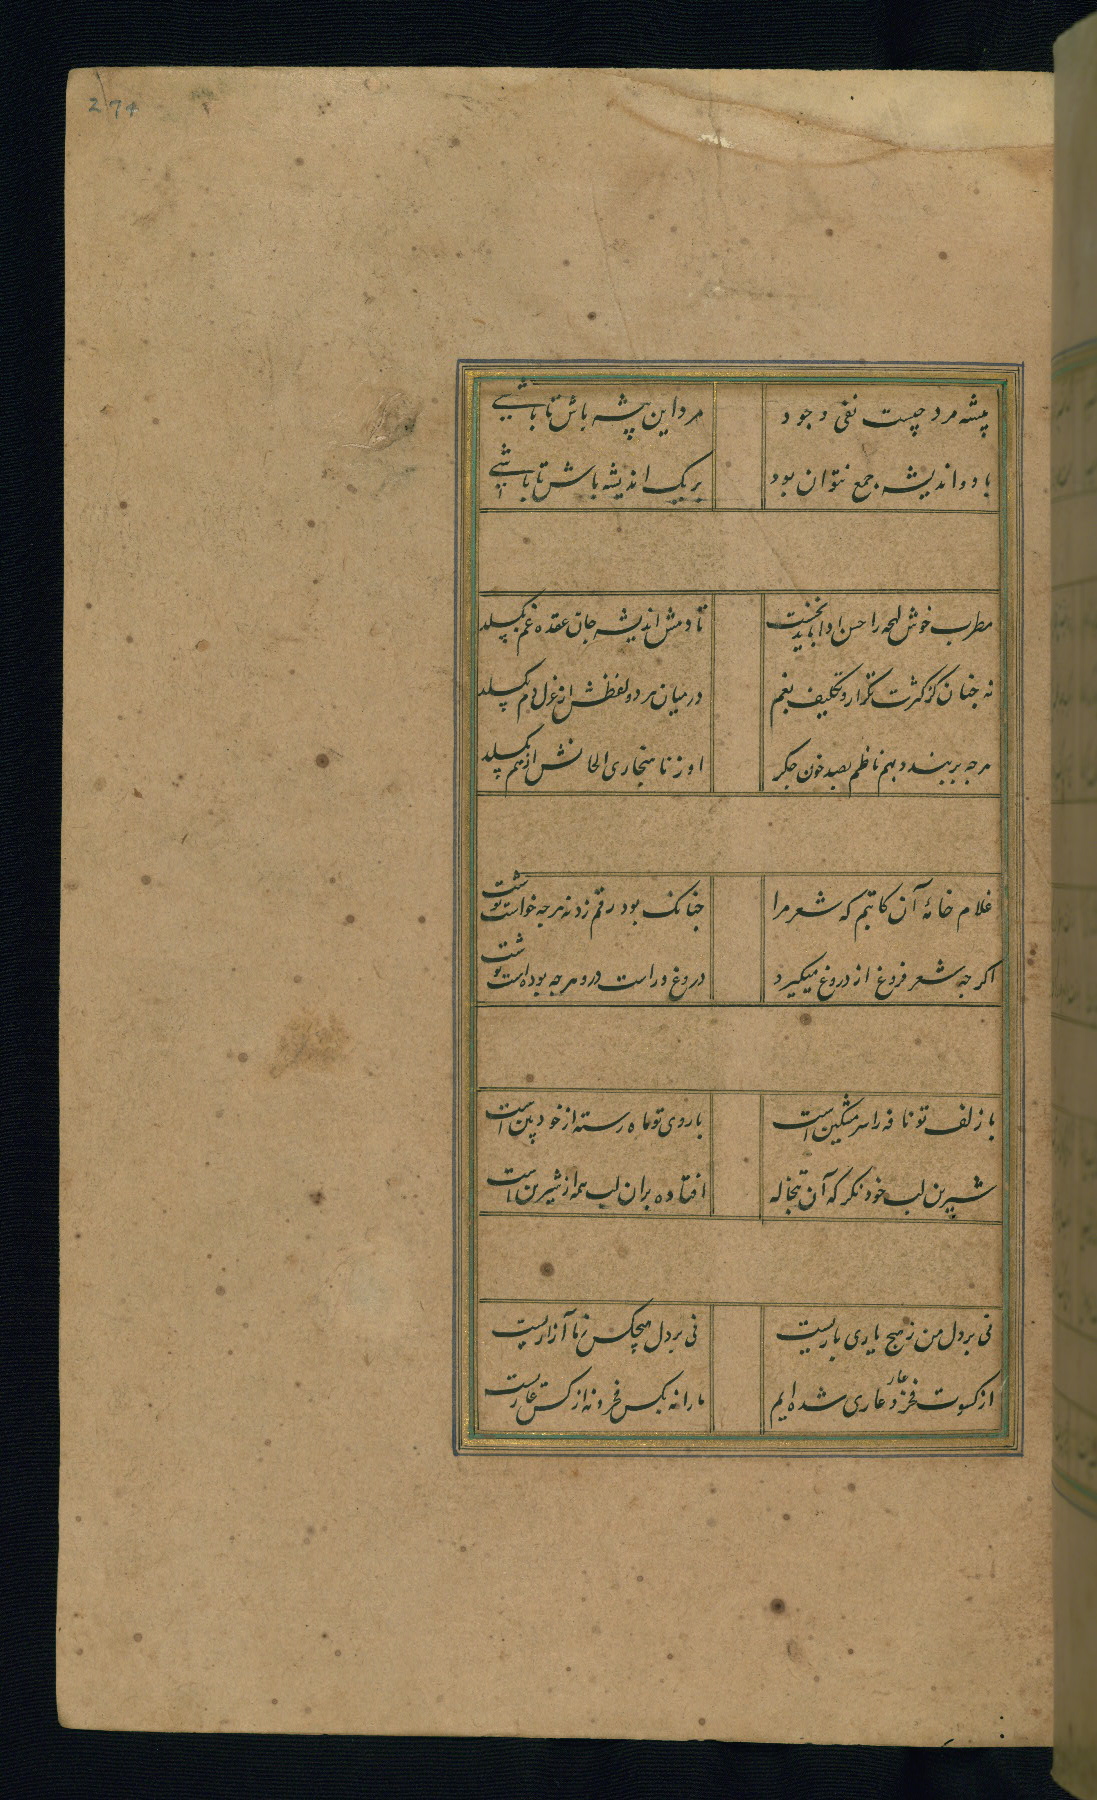 274
پیشه مرد چیست نفی وجود مرد این پیشه باش تا باشی
با دو اندیشه جمع نتوان بود بر یک اندیشه باش تا باشی
مطرب خوش لهجه را حسن ادا باید نخست تا دمش اندیشه جان عقده غم بگسلد
نه چنان کز کثرت تکرار و تکلیف نغم در میان هر دو لفظش از غزل دم بگسلد
هرچه بربندد بهم ناظم بصد خون جگر او ز ناهنجاری الحانش از هم بگسلد
غلام خامهٔ آن کاتبم که شعر مرا چنانک بود رقم زد نه هرچه خواست نوشت
اگرچه شعر فروغ از دروغ میگیرد دروغ و راست درو هرچه بوده است نوشت
با زلف تو نافه را سر مشکین است با روی تو ماه رسته از خود بین است
شیرین لب خود نگر که آن تبخاله افتاده بران لب همه از شیرین است
نی بر دل من ز هیچ یاری باریست نی بر دل هیچکس ز ما آزاریست
از کسوت فخر و عار عاری شده ایم ما را نه بکس فخر و نه از کس عاریست